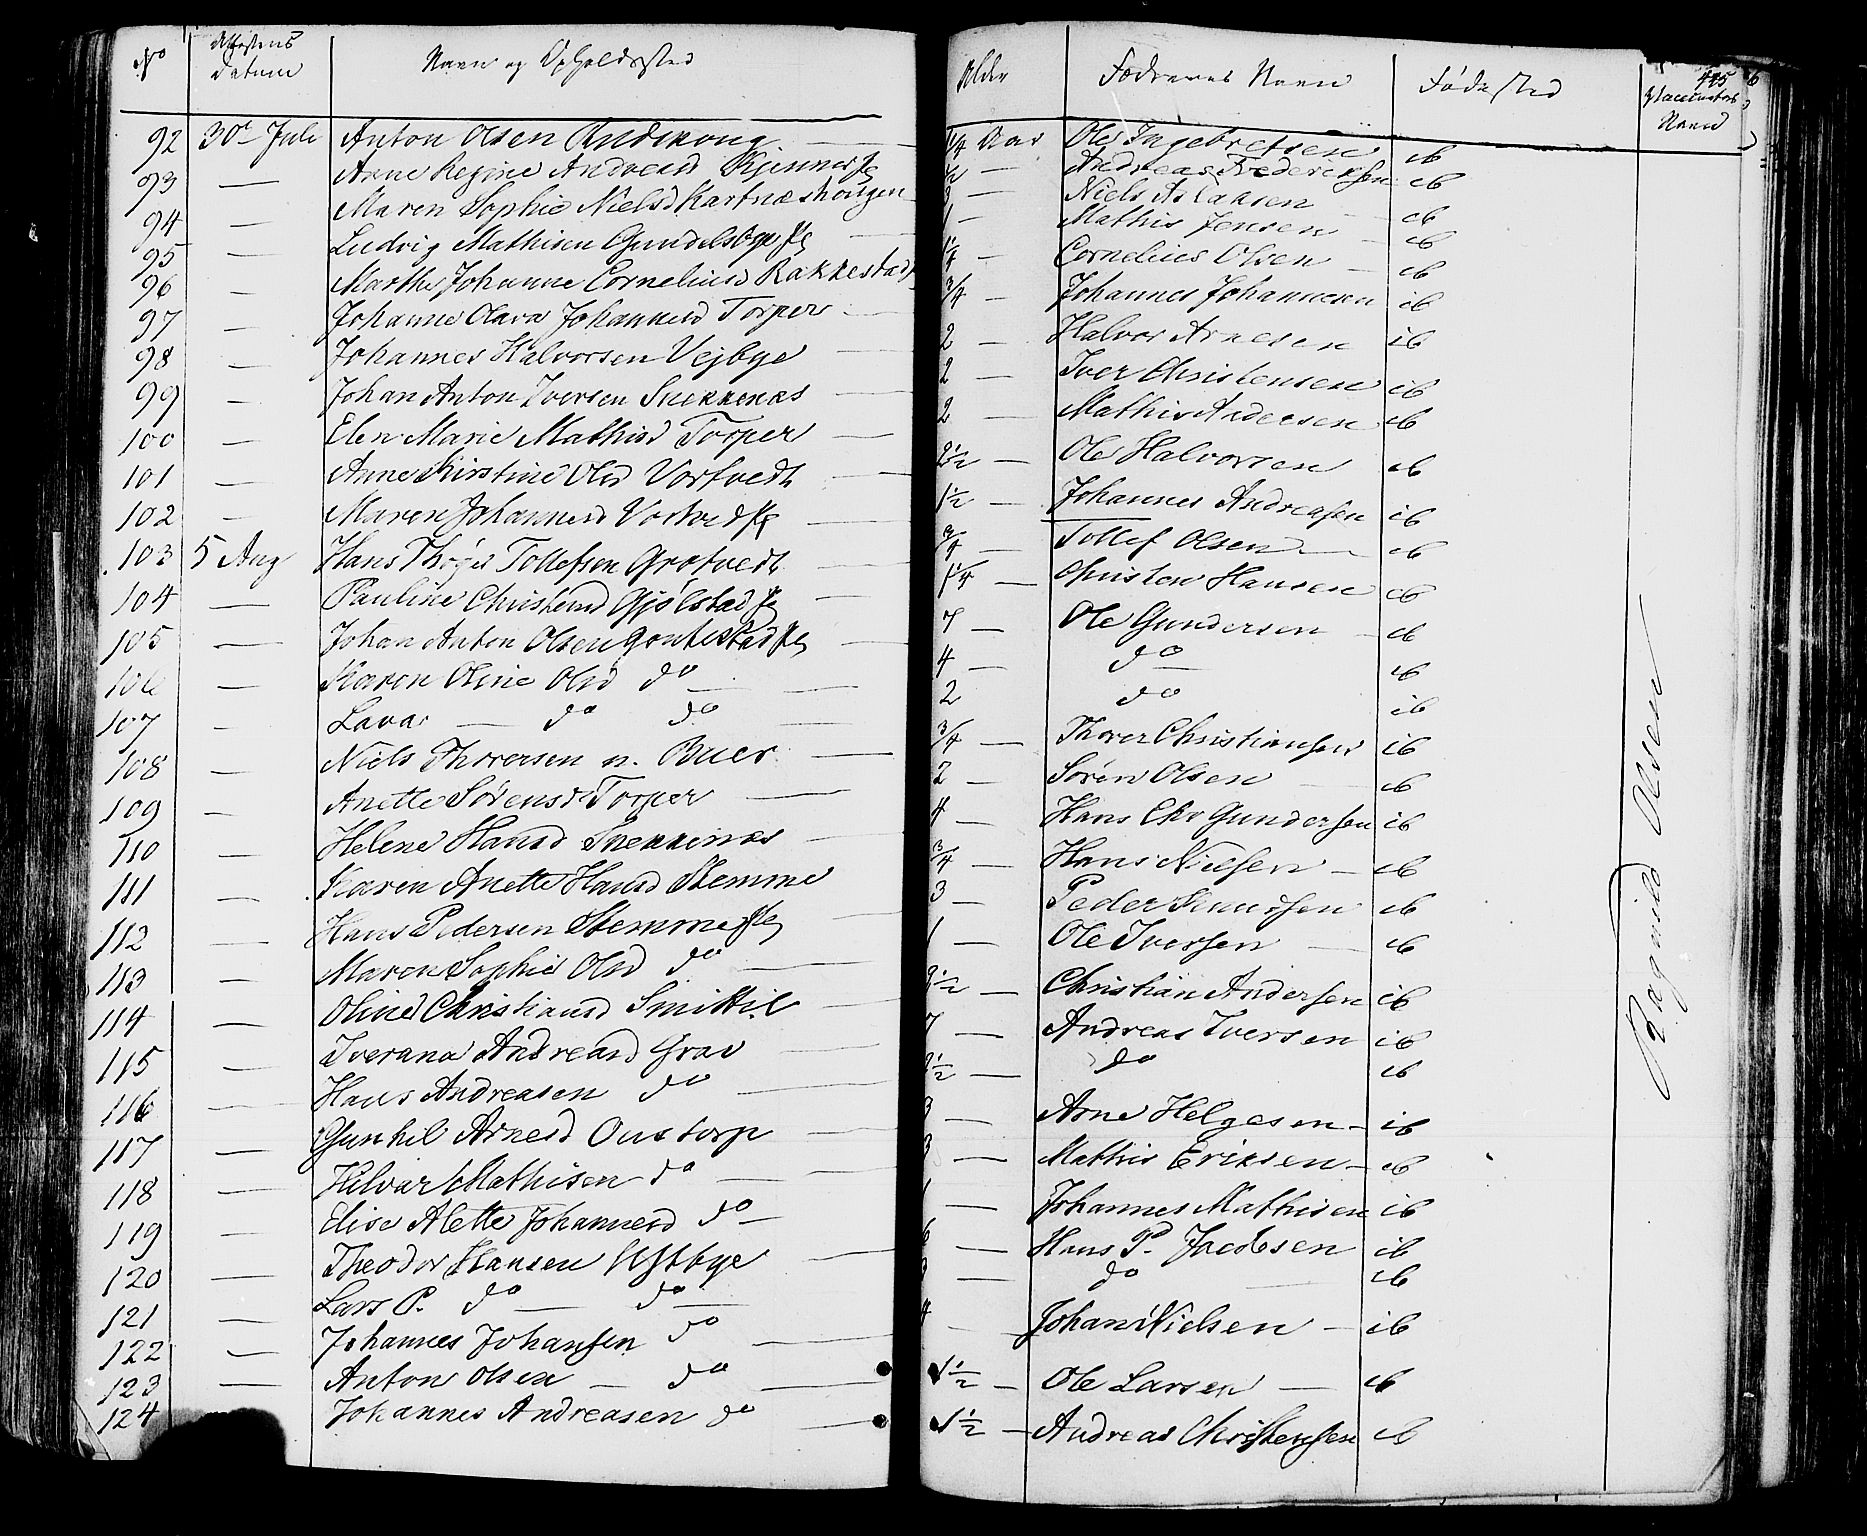 No Attestens Datum Navn og Opholdssted Alder Fædrenes Navn Fødested Vaccinatørs Navn 445
92 30te Juli Anton Olsen 1/4 Aar Ole Ingebretsen ib
93 — Anne Regine Andreasd Kjenner 1/2 — Andreas Frederiksen ib
94 — Maren Sophie Nielsd Kartnæshougen 3 — Niels Aslaksen ib
95 — Ludvig Mathisen Gundelsbye 1 — Mathis Jensen ib
96 — Marthe Johanne Corneliusd Rakkestad — Cornelius Olsen ib
97 — Johanne Olava Johannesd Torper 3/4 — Johannes Johannesen ib
98 — Johannes Halvorsen Vejbye 2 — Halvor Arnesen ib
99 — Johan Anton Iversen Snekkenæs 2 — Iver Christensen ib
100 — Elen Marie Mathisd Torper 2 — Mathis Andersen ib
101 — Anne Kirstine Olsd Vortvedt 2 1/2 — Ole Halvorsen ib
102 — Maren Johannesd Vortvedt 1 1/2 — Johannes Andreasen ib
103 5 Aug Hans Thøger Tollefsen Grotvedt — Tollef Olsen ib
104 — Pauline Christensd Gjølstad 1 1/4 — Christen Hansen ib
105 — Johan Anton Olsen 7 — Ole Gundersen ib
106 — Karen Oline Olsd do 4 — do ib
107 — Lava — do do 2 do ib
108 — Niels Thorersen n. Buer 3/4 — Thorer Christiansen ib
109 — Anette Sørensd Torper 2 — Søren Olsen ib
110 — Helene Hansd Snekkenæs 4 — Hans Chr Gundersen ib
111 — Karen Anette Hansd Stemme 3/4 — Hans Nielsen ib
112 — Hans Pedersen Stemme 3 — Peder Knudsen ib
113 — Maren Sophie Olsd do 1 — Ole Iversen ib
114 — Oline Christiansd Smittil 2 1/2 — Christian Andersen ib
115 — Iverana Andreasd Grav 7 — Andreas Iversen ib
116 — Hans Andreasen do 2 1/2 — do ib
117 — Gunhil Arnesd Oustorp 3 — Arne Helgesen ib
118 — Hilvar Mathisen do 3 — Mathis Eriksen ib
119 — Elise Alette Johannesd do 1 — Johannes Mathisen ib
120 — Theodor Hansen Ustbye 6 — Hans P. Jacobsen ib
121 — Lars P. do do — do ib
122 — Johannes Johansen do 4 — Johan Nielsen ib
123 — Anton Olsen — do 1 1/2 — Ole Larsen ib
124 Johannes Andreasen do 1 1/2 — Andreas Christensen ib
Ragnild Olsen